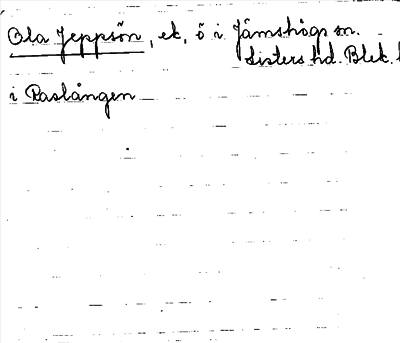 Ola Jeppsön, ek, ö i Jämshögs sn.
Listers hd. Blek.
i Raslången